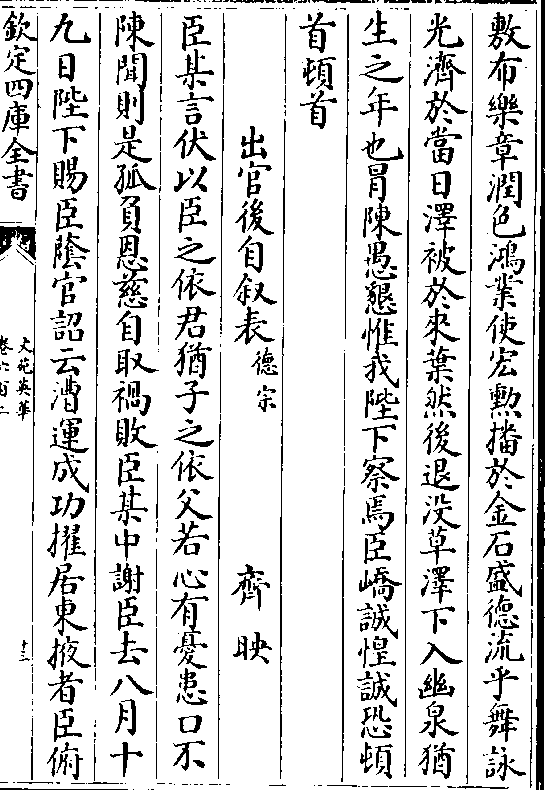 敷布樂章潤色鴻業使宏勲播於金石盛德流乎舞詠
光濟於當日澤被於來葉然後退没草澤下入幽泉猶
生之年也冒陳愚懇惟我陛下察焉臣嶠誠惶誠恐頓
首頓首
出官後自叙表德宗 齊映
臣某言伏以臣之依君猶子之依父若心有憂患口不
陳聞則是孤負恩慈自取禍敗臣某中謝臣去八月十
九日陛下賜臣䕃官詔云漕運成功擢居東掖者臣俯
欽定四庫全書
文苑英華
卷六百二
十三